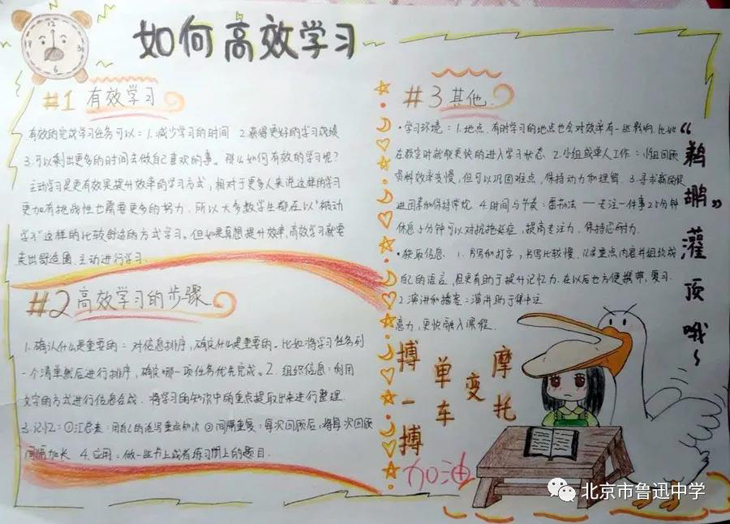 如何高效学习
#1 有效学习
有效的完成学习任务可以：1.减少学习的时间 2.获得更好的学习成绩
3.可以剩出更多的时间去做自己喜欢的事。那么如何有效的学习呢？
主动学习是更有效率提升效率的学习方式，相对于更多人来说这样的学习
更加有挑战性也需要更多的努力，所以大多数学生都在以“被动
学习”这样的比较舒适的方式学习。但如果真想提升效率，高效学习就要
走出舒适圈，主动进行学习。
#2 高效学习的步骤
1.确认什么是重要的：对信息排序，确定什么是重要的。比如将学习任务列
一个清单然后进行排序，确定哪一项任务优先完成。2.组织信息：利用
文字的方式进行信息合成，将学习的知识中的重点提取出来进行整理
3.记忆：①汇总 用自己的 ②间隔重复：每次回顾后，将每次回顾
间隔加长 4.应用：做一些书上或者练习册上的题目
#3 其他
·学习环境：1.地点，有时学习的地点也会对效率有一些影响，比如
在教室时就能更快的进入学习状态 2.小组或单人工作：小组回顾
效率变慢，但可以巩固难点，保持动力和理解 3.寻求
4.时间与节奏：番茄法——专注一件事25分钟
休息5分钟可以对抗拖延症，提高专注力，保持
·获取信息：1.书写和打字，书写比较慢，记录重点内容并组织成
自己的语言，但更有助于提升记忆力，在以后也方便携带，复习
2.演讲和播客：演讲助于集中注
意力，更快融入课程
“鹈鹕”灌顶哦~
搏一搏
单车
变
摩托
加油
北京市鲁迅中学